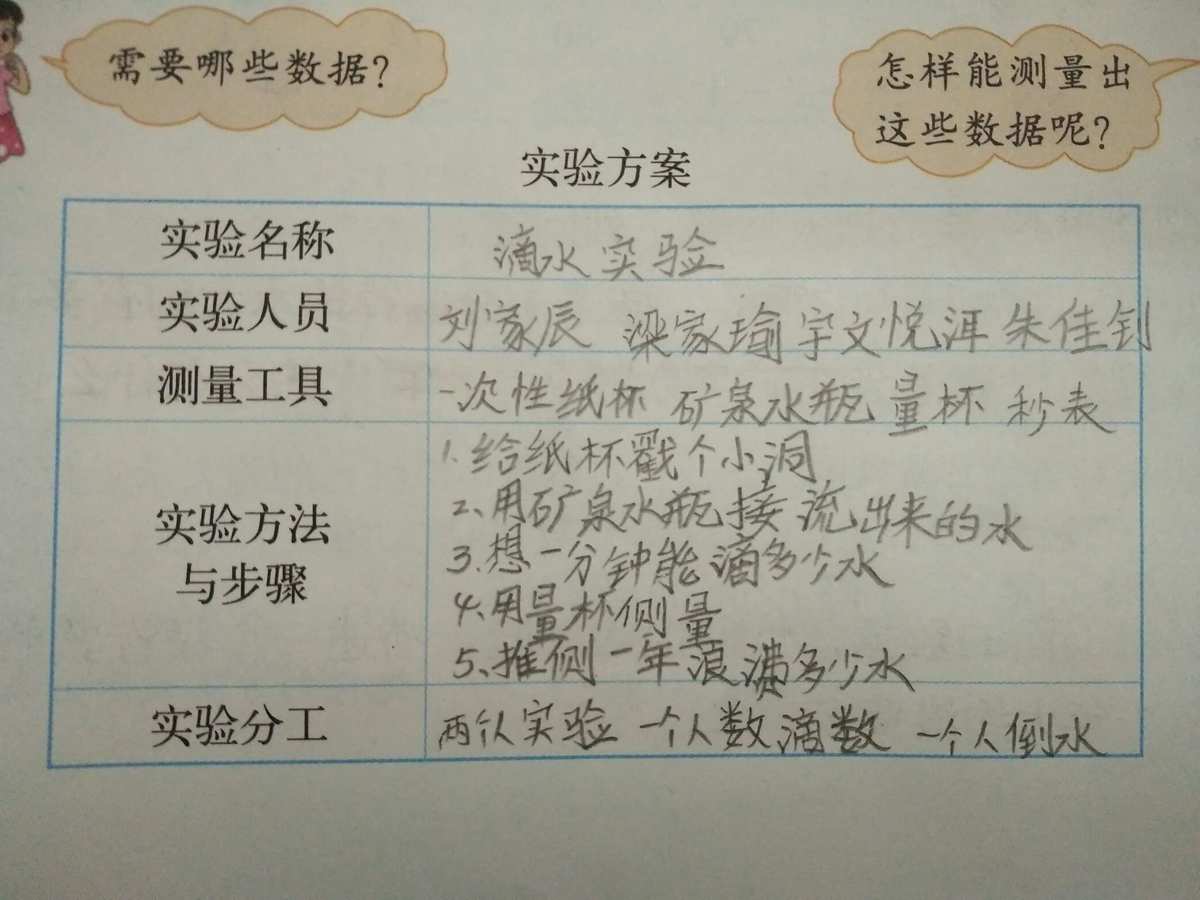 需要哪些数据？
怎样能测量出
这些数据呢？
实验方案
实验名称 滴水实验
实验人员 刘家辰 梁家瑜 宇文悦洱 朱佳钊
测量工具 一次性纸杯 矿泉水瓶 量杯 秒表
实验方法
与步骤
1.给纸杯戳个小洞
2、用矿泉水瓶接流出来的水
3.想一分钟能滴多少水
4、用量杯侧量
5、推侧一年浪费多少水
实验分工 两个人实验 一个人数滴数 一个人倒水